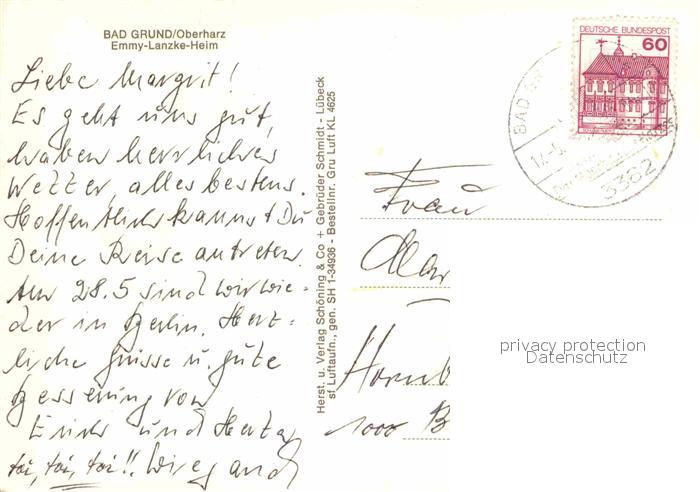 BAD GRUND/Oberharz
Emmy-Lanzke-Heim
Liebe Margrit!
Es geht uns gut,
haben herrliches
Wetter, alles bestens.
Hoffentlich kannst Du
Deine Reise antreten.
Am 28.5 sind wir wie-
der in Berlin. Herz-
liche Grüsse u. gute
Besserung von
Erich und Herta
toi, toi, toi!!
Herst. u. Verlag Schöning & Co + Gebrüder Schmidt - Lübeck
sf Luftaufn., gen. SH 1-34936 - Bestellnr. Gru Luft KL 4625
DEUTSCHE BUNDESPOST
60
BAD GR
3362
Frau
Mar
Hornb
1000 B
privacy protection
Datenschutz